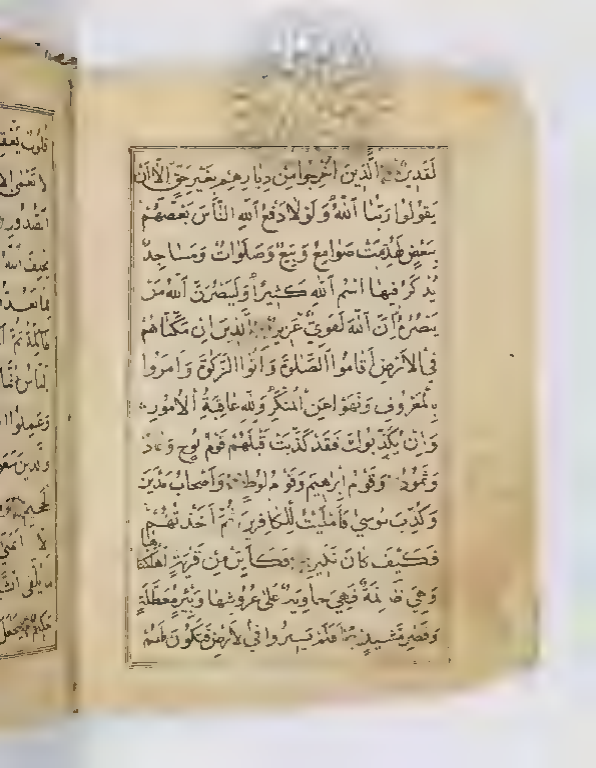 لَقَدِيرٌ الَّذِينَ أُخْرِجُوا مِنْ دِيَارِهِمْ بِغَيْرِ حَقٍّ إِلَّا أَنْ
يَقُولُوا رَبُّنَا اللَّهُ وَلَوْلَا دَفْعُ اللَّهِ النَّاسَ بَعْضَهُمْ
بِبَعْضٍ لَهُدِّمَتْ صَوَامِعُ وَبِيَعٌ وَصَلَوَاتٌ وَمَسَاجِدُ
يُذْكَرُ فِيهَا اسْمُ اللَّهِ كَثِيرًا وَلَيَنْصُرَنَّ اللَّهُ مَنْ
يَنْصُرُهُ إِنَّ اللَّهَ لَقَوِيٌّ عَزِيزٌ الَّذِينَ إِنْ مَكَّنَّاهُمْ
فِي الْأَرْضِ أَقَامُوا الصَّلَوةَ وَآتَوُا الزَّكَوةَ وَأَمَرُوا
بِالْمَعْرُوفِ وَنَهَوْا عَنِ الْمُنْكَرِ وَلِلَّهِ عَاقِبَةُ الْأُمُورِ
وَإِنْ يُكَذِّبُوكَ فَقَدْ كَذَّبَتْ قَبْلَهُمْ قَوْمُ نُوحٍ وَعَادٌ
وَثَمُودُ وَقَوْمُ إِبْرَهِيمَ وَقَوْمُ لُوطٍ وَأَصْحَابُ مَدْيَنَ
وَكُذِّبَ مُوسَى فَأَمْلَيْتُ لِلْكَافِرِينَ ثُمَّ أَخَذْتُهُمْ
فَكَيْفَ كَانَ نَكِيرِ فَكَأَيِّنْ مِنْ قَرْيَةٍ أَهْلَكْنَاهَا
وَهِيَ ظَالِمَةٌ فَهِيَ خَاوِيَةٌ عَلَى عُرُوشِهَا وَبِئْرٍ مُعَطَّلَةٍ
وَقَصْرٍ مَشِيدٍ أَفَلَمْ يَسِيرُوا فِي الْأَرْضِ فَتَكُونَ لَهُمْ